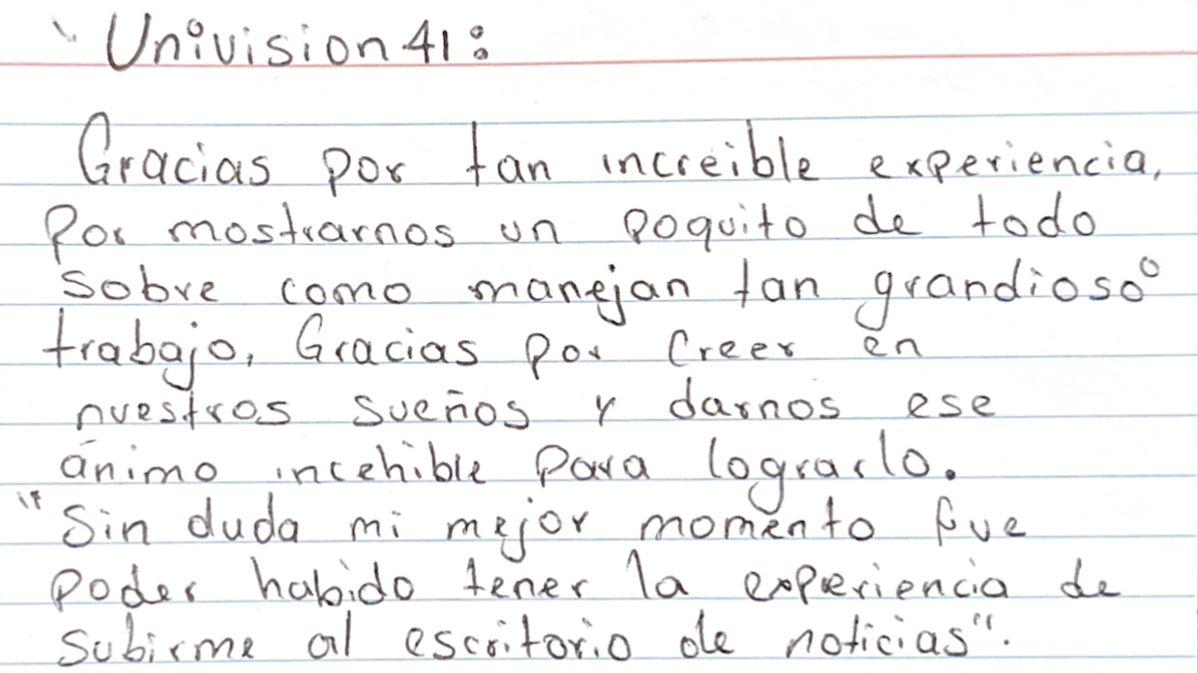 Univision 41:
Gracias por tan increible experiencia,
Por mostrarnos un poquito de todo
sobre como manejan tan grandioso
trabajo, Gracias por Creer en
nuestros sueños y darnos ese
ánimo incehible para lograrlo.
"Sin duda mi mejor momento fue
poder habido tener la experiencia de
subirme al escritorio de noticias".